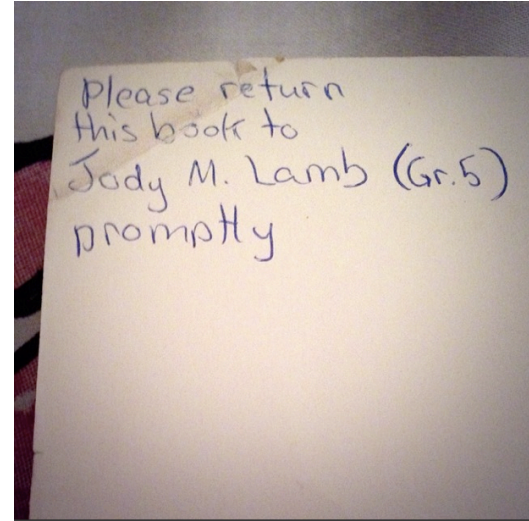 Please return
this book to
Jody M. Lamb (Gr.5)
promptly